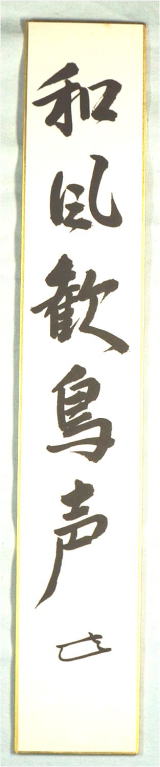 和風歓鳥声